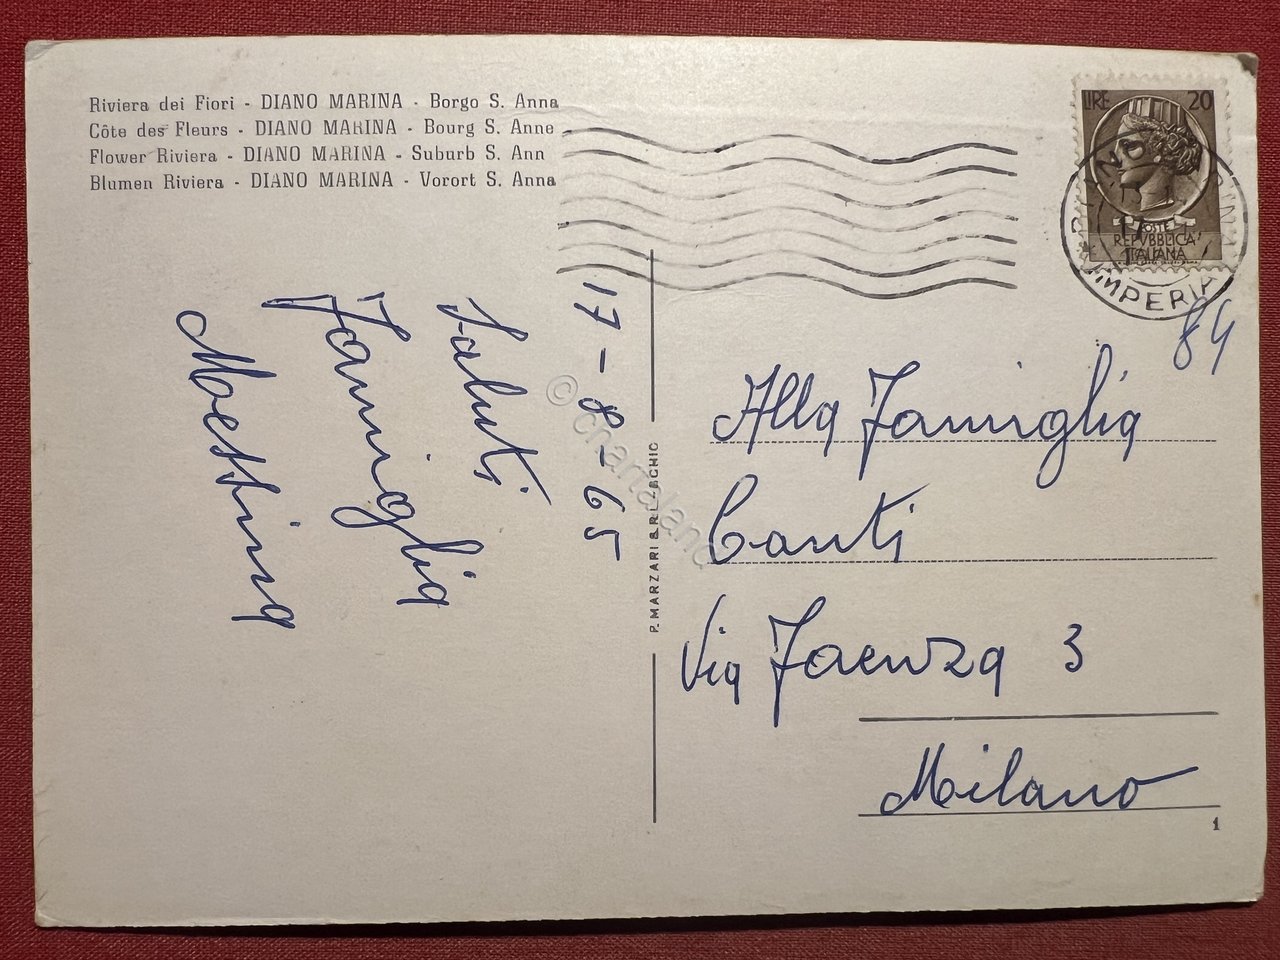 Riviera dei Fiori - DIANO MARINA - Borgo S. Anna
Côte des Fleurs - DIANO MARINA - Bourg S. Anne
Flower Riviera - DIANO MARINA - Suburb S. Ann
Blumen Riviera - DIANO MARINA - Vorort S. Anna
17-8-65
Saluti
Famiglia
Maestina
P. MARZARI
© chartaland
LIRE 20
POSTE
REPVBBLICA
ITALIANA
IMPERIA
84
Alla Famiglia
Canti
Via Faenza 3
Milano
1